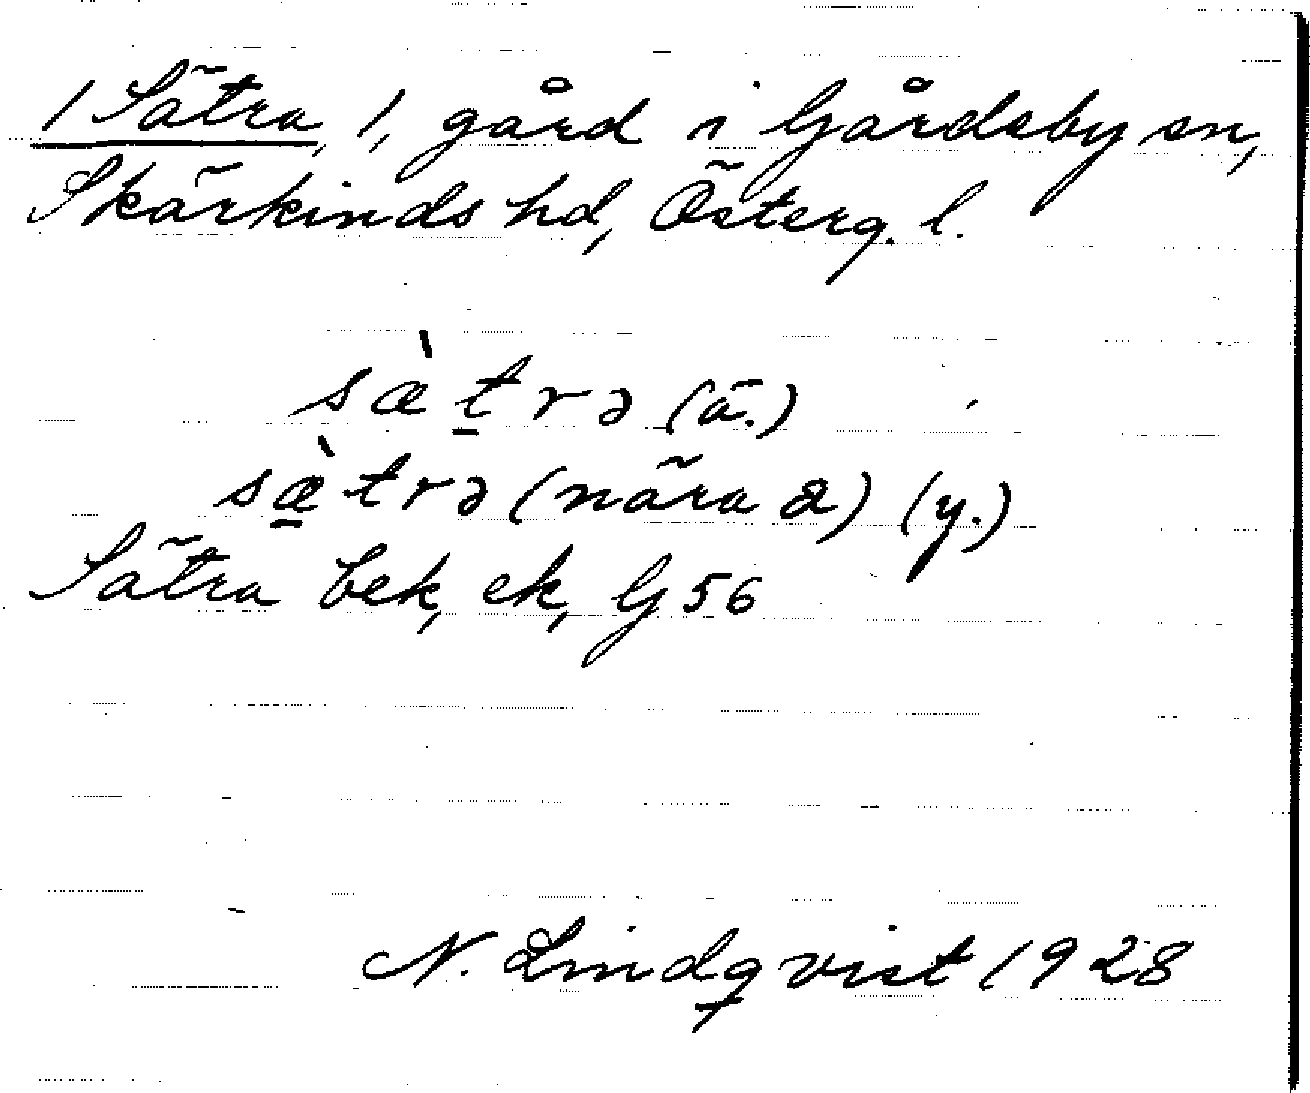 1 Sätra, 1, gård i Gårdeby sn,
Skärkinds hd, Österg. l.
sæ̀t̲rə (ä.)
sæ̲̀trə (nära a) (y.)
Sätra bek, ek, G 56
N. Lindqvist 1928